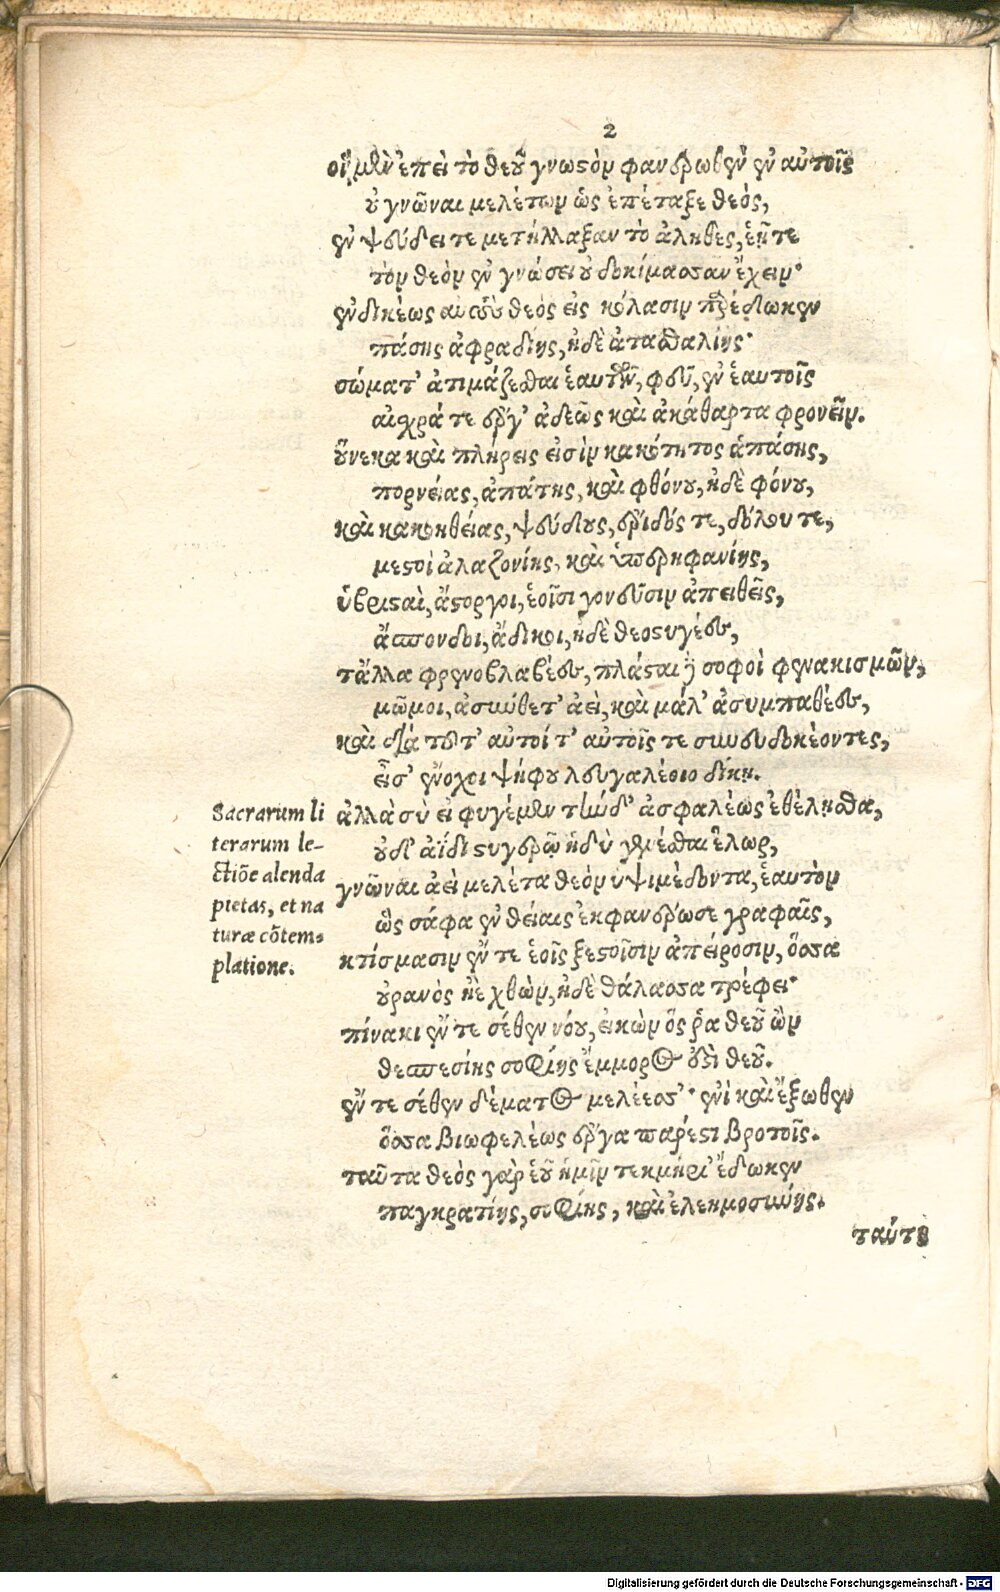 2
οἵ μὲν ἐπεὶ τὸ θεοῦ γνωστὸν φανερωθὲν ἐν αὐτοῖς
οὐ γνῶναι μελέτων ὡς ἐπέταξε θεός,
ἐν ψεύδει τε μετήλλαξαν τὸ ἀληθὲς,
τὸν θεὸν ἐν γνώσει οὐ δοκίμασσαν ἔχειν·
ἐνδικέως θεὸς εἰς κόλασιν
πάσης ἀφραδίης, ἠδὲ ἀτασθαλίης·
σώματ' ἀτιμάζεσθαι ἑαυτῶν, φεῦ, ἐν ἑαυτοῖς
αἰσχρά τε ἔργ' ἀδεῶς καὶ ἀκάθαρτα φρονεῖν.
οὕνεκα καὶ πλήρεις εἰσὶν κακότητος ἁπάσης,
πορνείας, ἀπάτης, καὶ φθόνου, ἠδὲ φόνου,
καὶ κακοηθείας, ψεύδους, ἔριδός τε, δόλου τε,
μεστοὶ ἀλαζονίης, καὶ ὑπερηφανίης,
ὑβρισταὶ, ἄστοργοι, ἑοῖσι γονεῦσιν ἀπειθεῖς,
ἄσπονδοι, ἄδικοι, ἠδὲ θεοστυγέες,
τἄλλα φρενοβλαβέες, πλάσται ἢ σοφοὶ φενακισμῶν,
μῶμοι, ἀσύνθετ' ἀεὶ, καὶ μάλ' ἀσυμπαθέες,
καὶ διὰ τοῦτ' αὐτοί τ' αὐτοῖς τε συνευδοκέοντες,
εἶσ' ἔνοχοι ψήφου λευγαλέοιο δίκῃ.
Sacrarum li
terarum le-
ctiõe alenda
pietas, et na
turæ cõtem-
platione.
ἀλλὰ σὺ εἰ φυγέμεν τὴνδ' ἀσφαλέως ἐθέλῃσθα,
οὐδ' ἀΐδι στυγερῷ ἡδὺ γενέσθαι ἕλωρ,
γνῶναι ἀεὶ μελέτα θεὸν ὑψιμέδοντα, ἑαυτὸν
ὣς σάφα ἐν θείαις ἐκφανέρωσε γραφαῖς,
κτίσμασιν ἔν τε ἑοῖς ξεστοῖσιν ἀπείροσιν, ὅσσα
οὐρανὸς ἠὲ χθὼν, ἠδὲ θάλασσα τρέφει·
πίνακι ἔν τε σέθεν νόου, εἰκὼν ὅς ῥα θεοῦ ὢν
θεσπεσίης σοφίης ἔμμορος ἐστὶ θεοῦ.
ἔν τε σέθεν δέματος μελέεσσ'· ἐνὶ καὶ ἔξωθεν
ὅσσα βιωφελέως ἔργα πάρεστι βροτοῖς.
ταῦτα θεὸς γὰρ ἑοῦ ἡμῖν τεκμήρι' ἔδωκεν
παγκρατίης, σοφίης, καὶ ἐλεημοσύνης.
ταῦτα
Digitalisierung gefördert durch die Deutsche Forschungsgemeinschaft - DFG